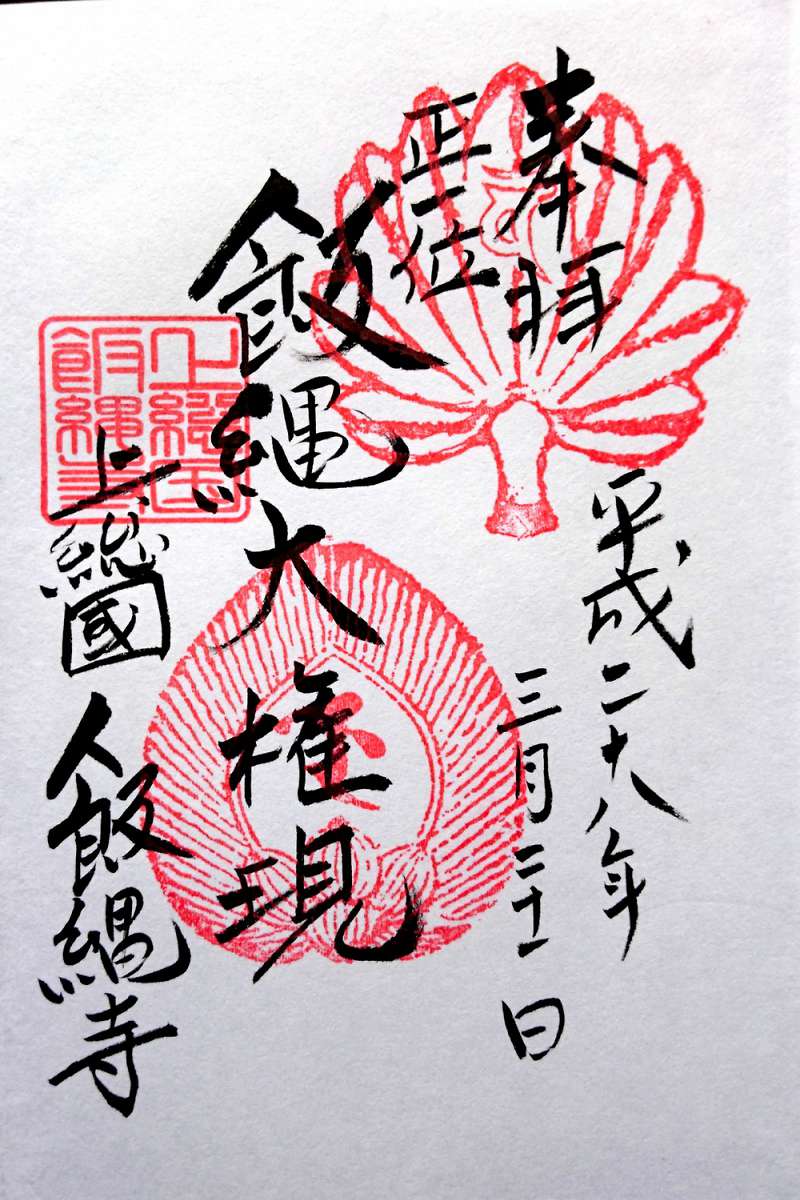 奉拝
平成二十八年
三月二十一日
正一位
飯縄大権現
上総国
飯縄寺
上総国
飯縄寺